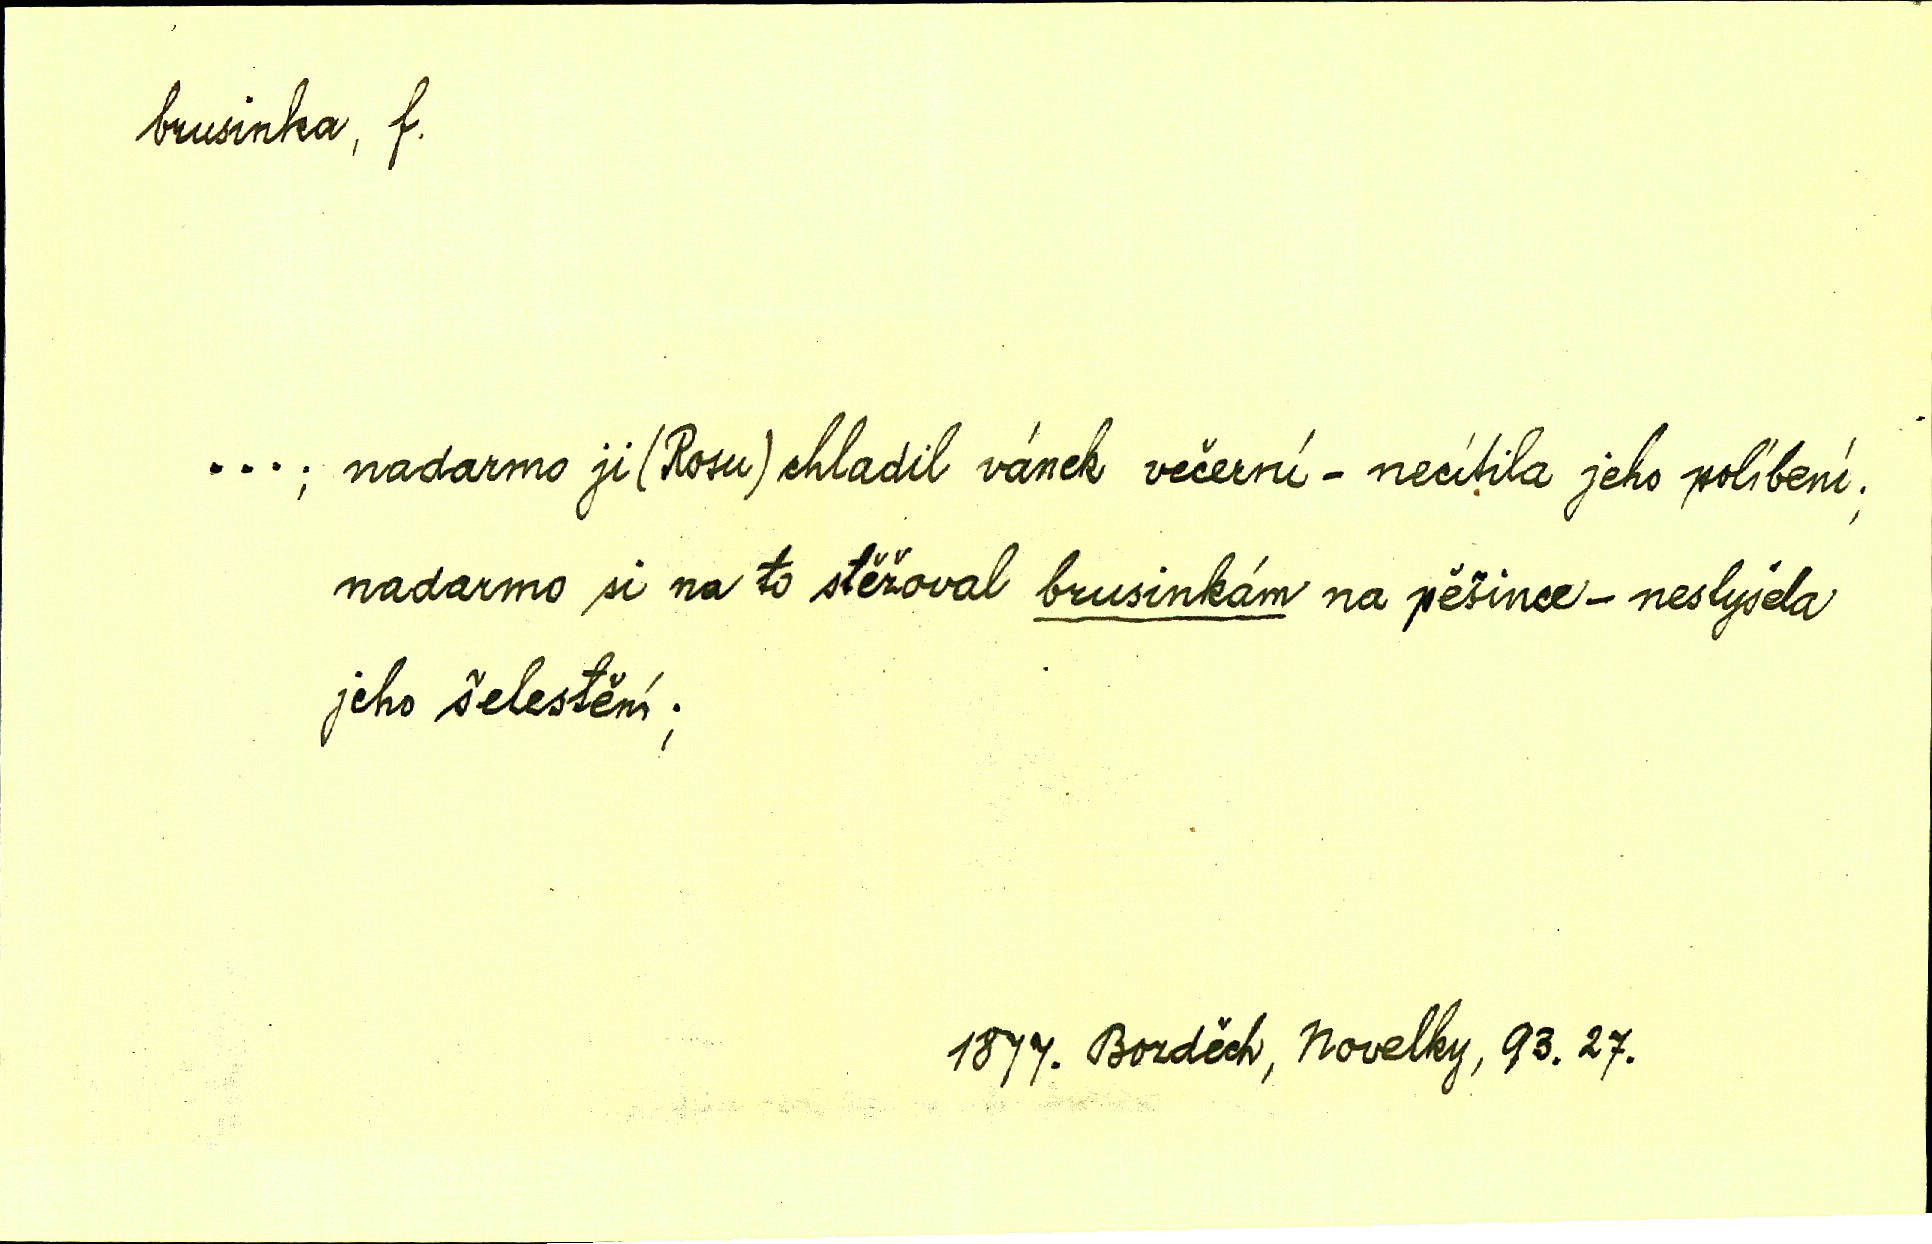 brusinka, f.
....; nadarmo ji (Rosu) chladil vánek večerní - necítila jeho políbení;
nadarmo si na to stěžoval brusinkám na pěšince - neslyšela
jeho šelestění;
1877. Borděch, Novelky, 93. 27.